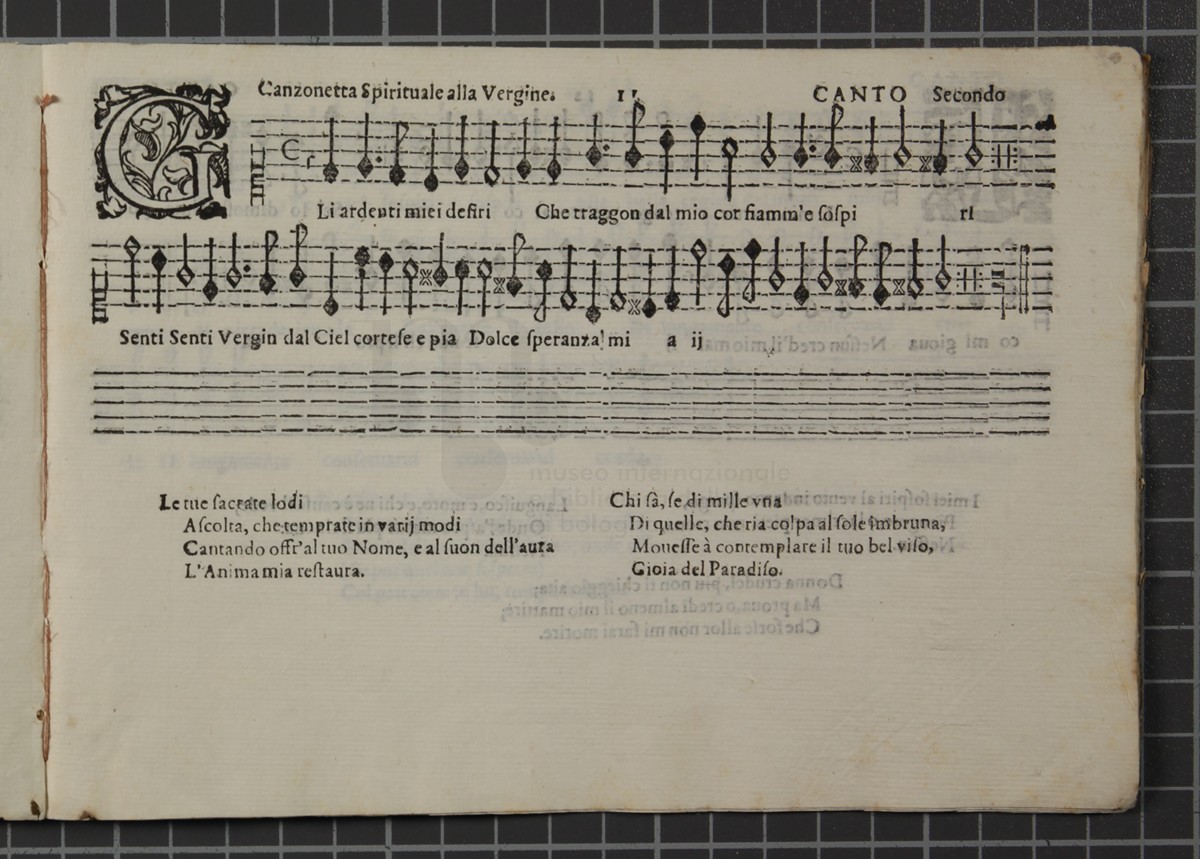 Canzonetta Spirituale alla Vergine. 11 CANTO Secondo
GLi ardenti miei desiri Che traggon dal mio cor fiamm'e sospi ri
Senti Senti Vergin dal Ciel cortese e pia Dolce speranza mi a ij
Le tue sacrate lodi
Ascolta, che temprate in varij modi
Cantando offr'al tuo Nome, e al suon dell'aura
L'Anima mia restaura.
Chi sà, se di mille vna
Di quelle, che ria colpa al sole imbruna,
Mouesse à contemplare il tuo bel viso,
Gioia del Paradiso.
museo internazionale